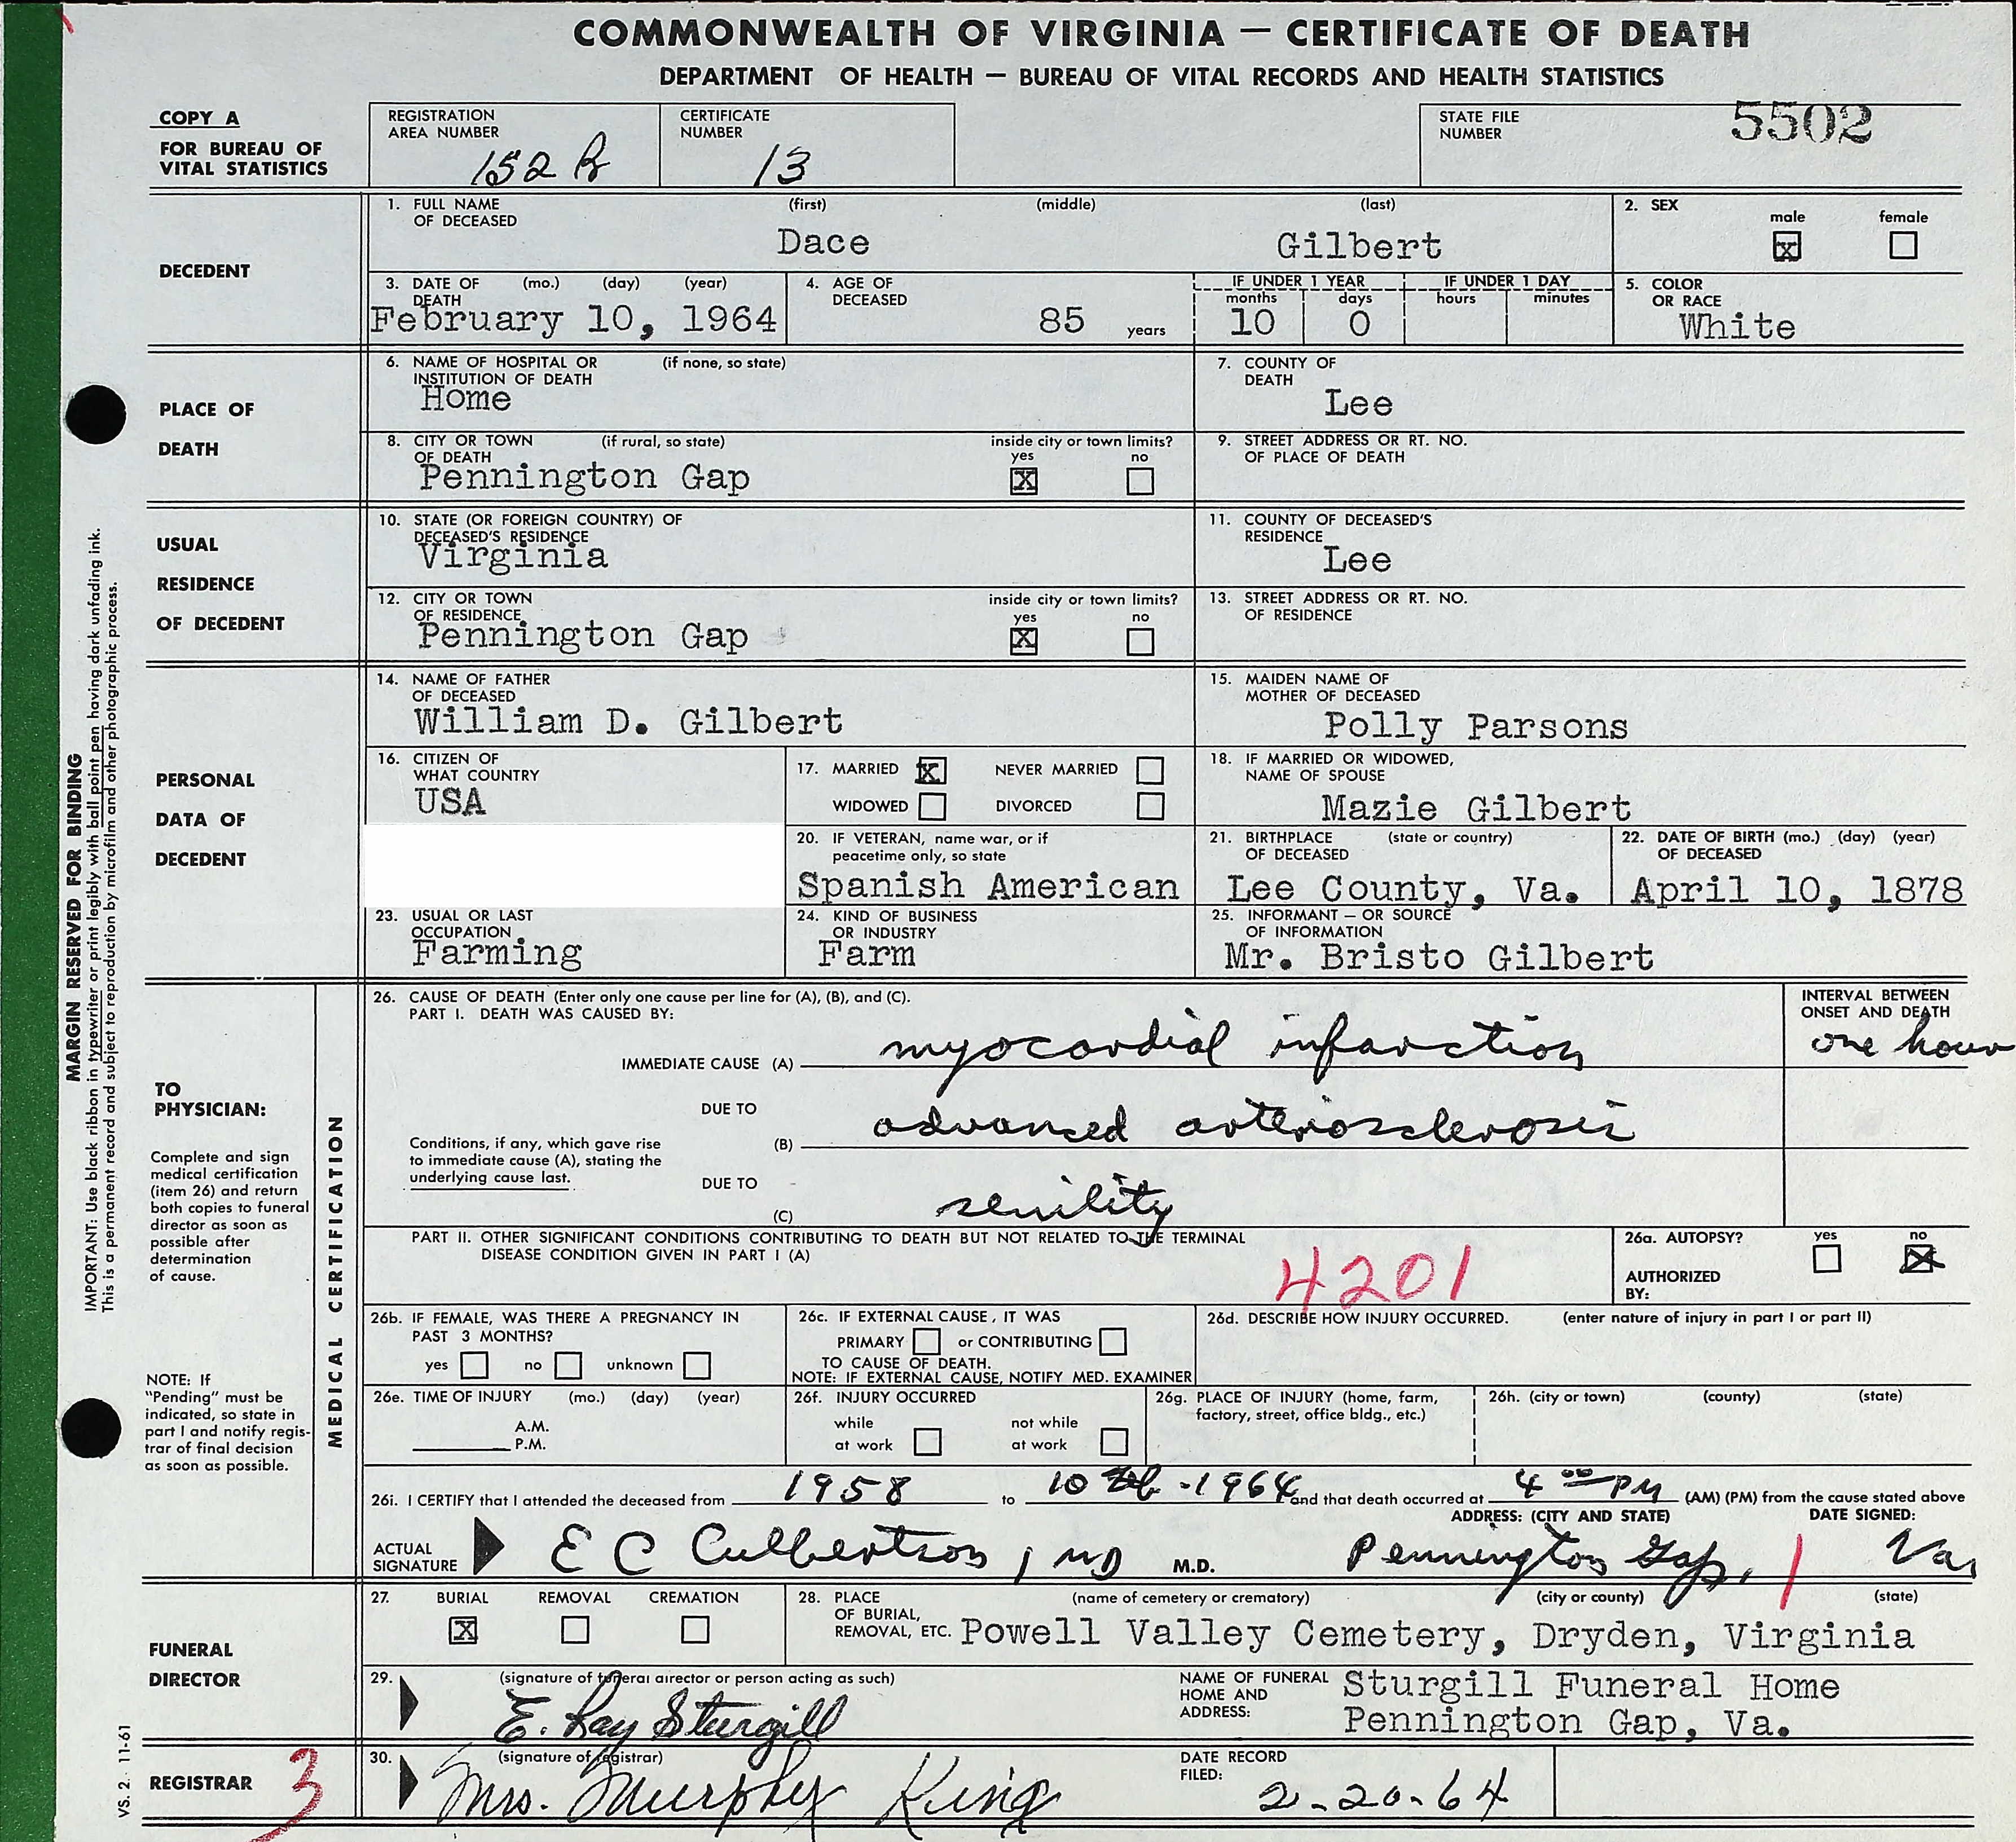 COMMONWEALTH OF VIRGINIA — CERTIFICATE OF DEATH
DEPARTMENT OF HEALTH — BUREAU OF VITAL RECORDS AND HEALTH STATISTICS
COPY A
FOR BUREAU OF
VITAL STATISTICS
REGISTRATION
AREA NUMBER
152 B
CERTIFICATE
NUMBER
13
STATE FILE
NUMBER
5502
DECEDENT
1. FULL NAME
OF DECEASED
(first) (middle) (last)
Dace Gilbert
2. SEX
male female
x
3. DATE OF (mo.) (day) (year)
DEATH
February 10, 1964
4. AGE OF
DECEASED
85 years
IF UNDER 1 YEAR
months days
10 0
IF UNDER 1 DAY
hours minutes
5. COLOR
OR RACE
White
PLACE OF
DEATH
6. NAME OF HOSPITAL OR (if none, so state)
INSTITUTION OF DEATH
Home
7. COUNTY OF
DEATH
Lee
8. CITY OR TOWN (if rural, so state)
OF DEATH
Pennington Gap
inside city or town limits?
yes no
X
9. STREET ADDRESS OR RT. NO.
OF PLACE OF DEATH
USUAL
RESIDENCE
OF DECEDENT
10. STATE (OR FOREIGN COUNTRY) OF
DECEASED'S RESIDENCE
Virginia
11. COUNTY OF DECEASED'S
RESIDENCE
Lee
12. CITY OR TOWN
OF RESIDENCE
Pennington Gap
inside city or town limits?
yes no
X
13. STREET ADDRESS OR RT. NO.
OF RESIDENCE
PERSONAL
DATA OF
DECEDENT
14. NAME OF FATHER
OF DECEASED
William D. Gilbert
15. MAIDEN NAME OF
MOTHER OF DECEASED
Polly Parsons
16. CITIZEN OF
WHAT COUNTRY
USA
17. MARRIED x NEVER MARRIED
WIDOWED DIVORCED
18. IF MARRIED OR WIDOWED,
NAME OF SPOUSE
Mazie Gilbert
20. IF VETERAN, name war, or if
peacetime only, so state
Spanish American
21. BIRTHPLACE (state or country)
OF DECEASED
Lee County, Va.
22. DATE OF BIRTH (mo.) (day) (year)
OF DECEASED
April 10, 1878
23. USUAL OR LAST
OCCUPATION
Farming
24. KIND OF BUSINESS
OR INDUSTRY
Farm
25. INFORMANT — OR SOURCE
OF INFORMATION
Mr. Bristo Gilbert
TO
PHYSICIAN:
Complete and sign
medical certification
(item 26) and return
both copies to funeral
director as soon as
possible after
determination
of cause.
NOTE: If
"Pending" must be
indicated, so state in
part I and notify regis-
trar of final decision
as soon as possible.
MEDICAL CERTIFICATION
26. CAUSE OF DEATH (Enter only one cause per line for (A), (B), and (C).
PART I. DEATH WAS CAUSED BY:
INTERVAL BETWEEN
ONSET AND DEATH
IMMEDIATE CAUSE (A) myocardial infarction
one hour
DUE TO
(B) advanced arteriosclerosis
Conditions, if any, which gave rise
to immediate cause (A), stating the
underlying cause last.
DUE TO
(C) senility
PART II. OTHER SIGNIFICANT CONDITIONS CONTRIBUTING TO DEATH BUT NOT RELATED TO THE TERMINAL
DISEASE CONDITION GIVEN IN PART I (A)
4201
26a. AUTOPSY? yes no
X
AUTHORIZED
BY:
26b. IF FEMALE, WAS THERE A PREGNANCY IN
PAST 3 MONTHS?
yes no unknown
26c. IF EXTERNAL CAUSE, IT WAS
PRIMARY or CONTRIBUTING
TO CAUSE OF DEATH.
NOTE: IF EXTERNAL CAUSE, NOTIFY MED. EXAMINER
26d. DESCRIBE HOW INJURY OCCURRED. (enter nature of injury in part I or part II)
26e. TIME OF INJURY (mo.) (day) (year)
A.M.
P.M.
26f. INJURY OCCURRED
while not while
at work at work
26g. PLACE OF INJURY (home, farm,
factory, street, office bldg., etc.)
26h. (city or town) (county) (state)
26i. I CERTIFY that I attended the deceased from 1958 to 10 Feb - 1964 and that death occurred at 4 00 PM (AM) (PM) from the cause stated above
ADDRESS: (CITY AND STATE) DATE SIGNED:
ACTUAL
SIGNATURE
E C Culbertson, MD M.D. Pennington Gap, Va,
FUNERAL
DIRECTOR
27. BURIAL REMOVAL CREMATION
X
28. PLACE
OF BURIAL,
REMOVAL, ETC.
(name of cemetery or crematory) (city or county) (state)
Powell Valley Cemetery, Dryden, Virginia
29. (signature of funeral director or person acting as such)
E. Ray Sturgill
NAME OF FUNERAL
HOME AND
ADDRESS:
Sturgill Funeral Home
Pennington Gap, Va.
REGISTRAR
3
30. (signature of registrar)
Mrs. Murphy King
DATE RECORD
FILED:
2-20-64
MARGIN RESERVED FOR BINDING
IMPORTANT: Use black ribbon in typewriter or print legibly with ball point pen having dark unfading ink.
This is a permanent record and subject to reproduction by microfilm and other photographic process.
VS. 2 11-61